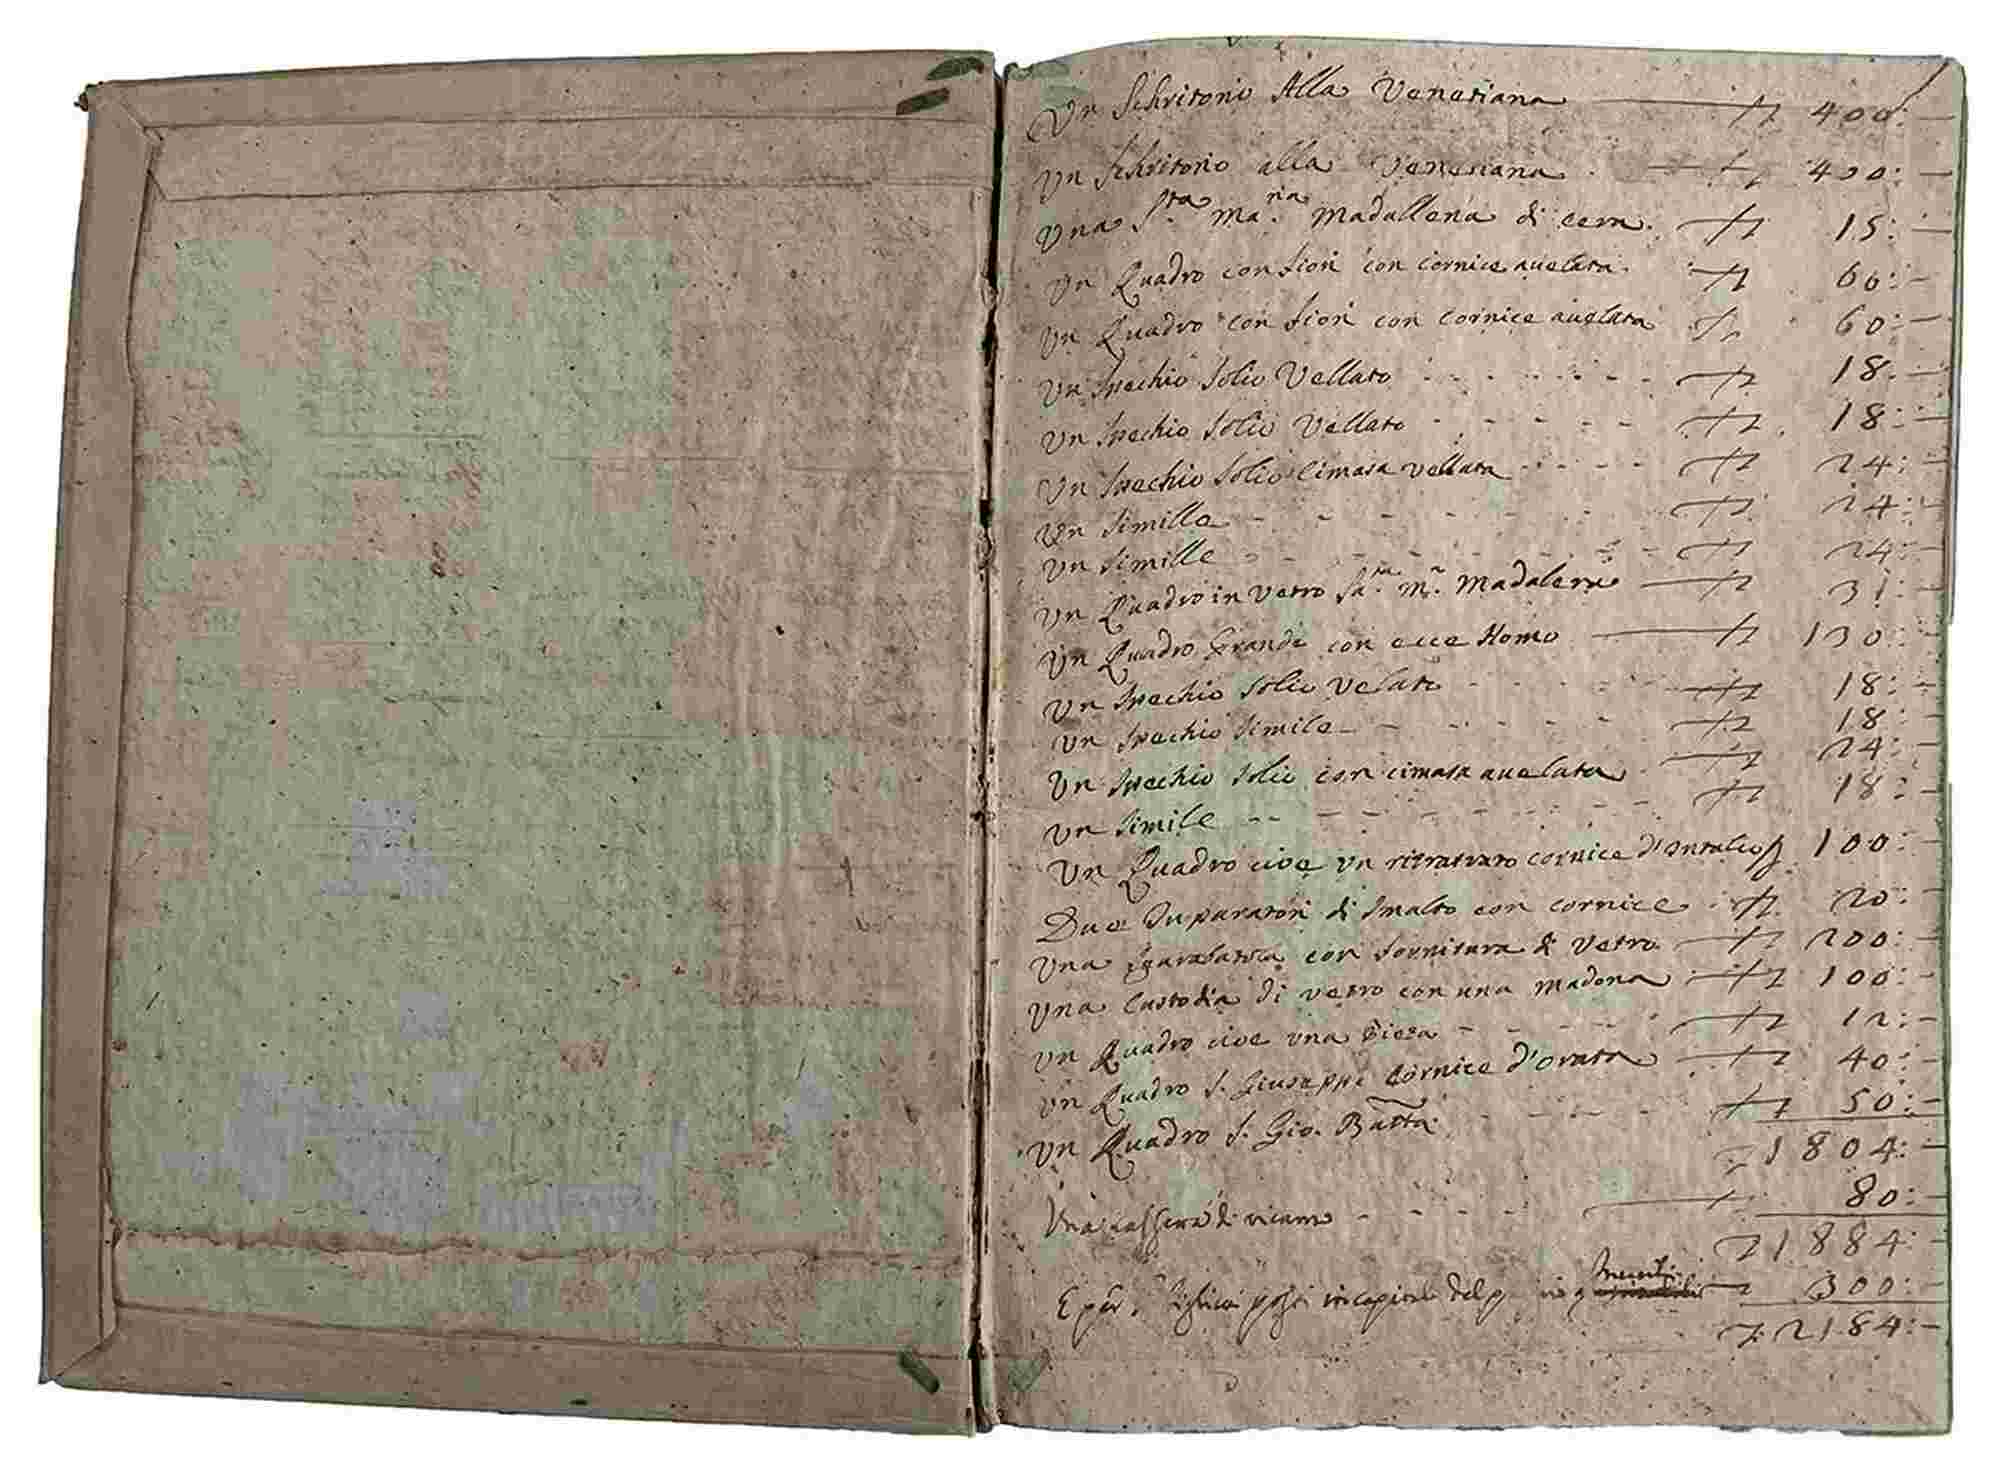 Un Schritorio Alla Venetiana 400:—
Un Schritorio alla Venetiana 400:—
Una S.ta Ma.ria Madallena di cera 15:—
Un Quadro con fiori con cornice auelata 60:—
Un Quadro con fiori con cornice auelata 60:—
Un Spechio Solio Vellato 18:—
Un Spechio Solio Vellato 18:—
Un Spechio Solio Cimasa vellata 24:—
Un Simille 24:—
Un Simille 24:—
Un Quadro in Vetro Sa.ta M.a Madalena 31:—
Un Quadro Grande con ecce Homo 130:—
Un Spechio Solio Velato 18:—
Un Spechio Simile 18:—
Un Spechio Solio con cimasa auelata 24:—
Un Simile 18:—
Un Quadro cioe un ritrattato cornice d'Intalio 100:—
Due di Smalto con cornice 20:—
Una con fornitura di Vetro 200:—
Una Custodia di vetro con una Madona 100:—
Un Quadro cioe una 12:—
Un Quadro S. Giuseppe Cornice d'orata 40:—
Un Quadro S. Gio. Batta 50:—
1804:—
Una di 80:—
1884:—
E per posti in capitale del 300:—
2184:—